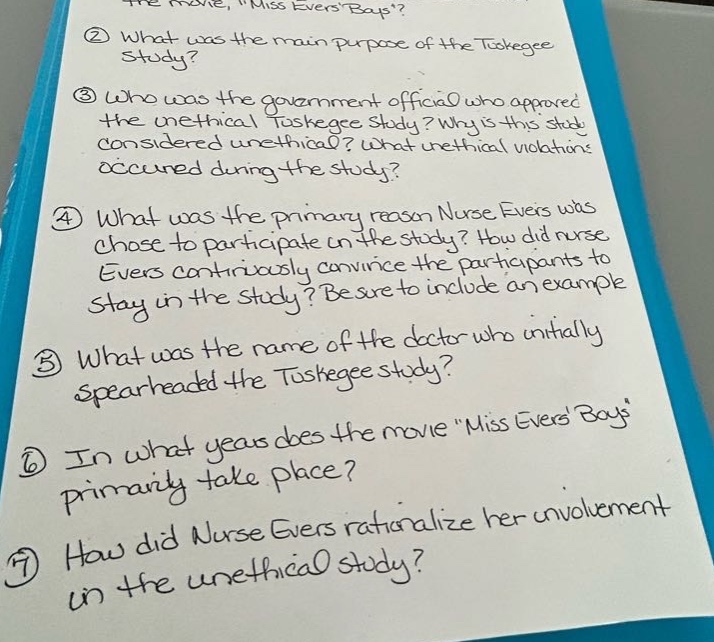 the movie, "Miss Evers' Boys"?
② What was the main purpose of the Tuskegee
study?
③ Who was the government official who approved
the unethical Tuskegee Study? Why is this study
considered unethical? What unethical violations
occurred during the study?
④ What was the primary reason Nurse Evers was
chose to participate in the study? How did nurse
Evers continuously convince the participants to
stay in the study? Be sure to include an example
⑤ What was the name of the doctor who initially
spearheaded the Tuskegee study?
⑥ In what years does the movie "Miss Evers' Boys"
primarily take place?
⑦ How did Nurse Evers rationalize her involvement
in the unethical study?